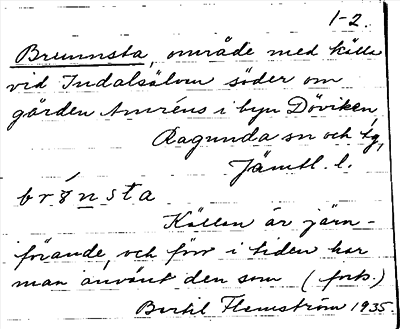 1-2.
Brunnsta, område med källa
vid Indalsälven söder om
gården Amréns i byn Döviken,
Ragunda sn och tg,
Jämtl. l.
brȣ́nsta
Källan är järn-
förande, och förr i tiden har
man använt den som (forts.)
Bertil Flemström 1935.